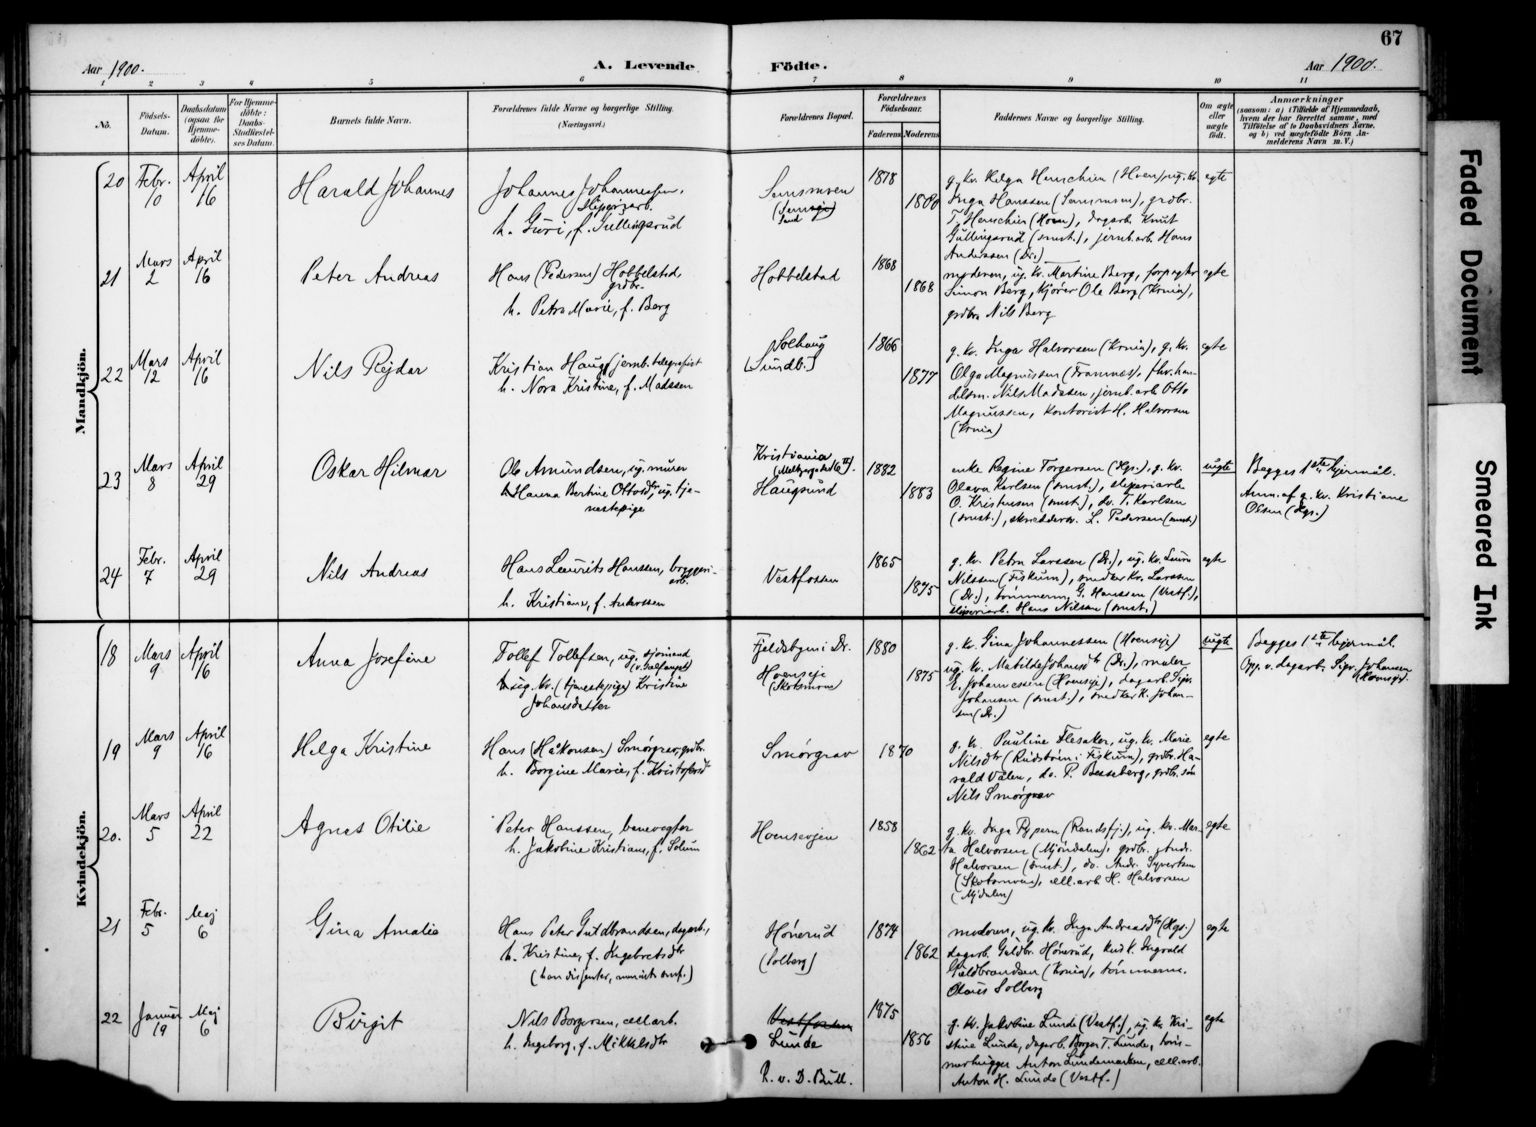 67
Aar 1900.
A. Levende Födte.
Aar 1900.
1 2 3 4 5 6 7 8 9 10 11
No.
Födsels-Datum.
Daabsdatum (ogsaa for Hjemme-döbte).
For Hjemme-döbte: Daabs-Stadfæstel-ses Datum.
Barnets fulde Navn.
Forældrenes fulde Navne og borgerlige Stilling.
(Næringsvei.)
Forældrenes Bopæl.
Forældrenes Födselsaar.
Faderens Moderens
Faddernes Navne og borgerlige Stilling.
Om ægte eller uægte födt.
Anmærkninger
(saasom: a) i Tilfælde af Hjemmedaab, hvem der har forrettet samme, med Tilföielse af to Daabsvidners Navne, og b) ved uægtefödte Börn Anmelderens Navn m. V.)
Mandkjön.
20 Febr. 10 April 16
Harald Johannes
Johannes Johannessen, sliperiarb.
h. Guri, f. Gullingsrud
Semsmoen
1878 1880
g. kv. Helga Henschien (Hoen), ug. kv.
Inga Hanssen (Semsmoen), grdbr.
T. Henschien (Hoen), dagarb. Knut
Gullingsrud (smst.), jernb.arb. Hans
Anderssen (Dr.)
egte
21 Mars 2 April 16
Peter Andreas
Hans (Pedersen) Hobbelstad, grdbr.
h. Petra Marie, f. Berg
Hobbelstad
1868 1868
moderen, ug. kv. Martine Berg, forpagter
Simon Berg, kjører Ole Berg (Krnia),
grdbr. Nils Berg
egte
22 Mars 12 April 16
Nils Rejdar
Kristian Haug, jernb. telegrafist
h. Nora Kristine, f. Madssen
Solhaug
[Sundb.]
1866 1877
g. kv. Inga Halvorsen (Krnia), g. kv.
Olga Magnussen (Framnes), fhv. han-
delsm. Nils Madssen, jernb.arb. Otto
Magnussen, kontorist H. Halvorsen
(Krnia)
egte
23 Mars 8 April 29
Oskar Hilmar
Ole Amundsen, ug. murer
Hanna Bertine Ottosdtr, ug. tje-
nestepige
Kristiania
Haugsund
1882 1883
enke Regine Torgersen (Hgs.), g. kv.
Olava Karlsen (smst.), sliperiarb.
O. Kristensen (smst.), do. T. Karlsen
(smst.), skrædder L. Pedersen (smst.)
uegte
Begges 1ste lejermål.
Anm. af g. kv. Kristiane
Olsen (Hgs.)
24 Febr. 7 April 29
Nils Andreas
Hans Laurits Hanssen, bryggeri-
arb.
h. Kristiane, f. Anderssen
Vestfossen
1865 1875
g. kv. Petra Larssen (Dr.), ug. kv. Laura
Nilssen (Fiskum), snedker Kr. Larssen
(Dr.), tömmerm. G. Hanssen (Vestf.),
sliperiarb. Hans Nilsen (smst.)
egte
Kvindekjön.
18 Mars 9 April 16
Anna Josefine
Tollef Tollefsen, ug. sjømand
ug. kv. (tjenestepige) Kristine
Johansdatter
Fjeldsbyen i Dr.
Hoenseje
(Skotsmoen)
1880 1875
g. kv. Gina Johannessen (Hoenseje)
ug. kv. Matilde Johansdtr (Dr.), maler
E. Johannessen (Hoenseje), dagarb. Sigv.
Johansen (smst.), snedker K. Johan-
sen (Dr.)
uegte
Begges 1ste lejermål.
Opg. v. dagarb. Sigv. Johansen
(Hoenseje).
19 Mars 9 April 16
Helga Kristine
Hans (Håkonsen) Smørgrav, grdbr.
h. Borgine Marie, f. Kristofersdtr
Smørgrav
1870
g. kv. Pauline Flesaker, ug. kv. Marie
Nilsdtr (Rudstrøm i Fiskum), grdbr. Ha-
rald Valen, do. P. Besseberg, grdbr. søn
Nils Smørgrav
egte
20. Mars 5 April 22
Agnes Otilie
Peter Hanssen, banevogter
h. Jakobine Kristiane, f. Solum
Hoensvejen
1858 1862
g. kv. Inga Rypern (Randsfj.), ug. kv. Mar-
ta Halvorsen (Mjøndalen), grdbr. Andr.
Halvorsen (smst.), do. Andr. Syvertsen
(Skotsmoen), cell.arb. H. Halvorsen
(Mjdalen)
egte
21 Febr. 5 Maj 6
Gina Amalie
Hans Peter Guldbrandsen, dagarb.,
h. Kristine, f. Ingebretsdtr
Hønerud
(Solberg)
1874 1862
moderen, ug. kv. Inga Andreasdtr (Hgs.)
dagarb. Guldbr. Hønerud, kusk Ingvald
Guldbrandsen (Krnia), tömmerm.
Olaus Solberg
egte
22 Januar 19 Maj 6
Birgit
Nils Borgersen, cell.arb.
h. Ingeborg, f. Mikkelsdtr
Vestfossen
Lunde
P. v. D. Bull.
1875 1856
g. kv. Jakobine Lunde (Vestf.), ug. kv. Kri-
stine Lunde, dagarb. Borger T. Lunde, töm-
merhugger Anton Lundemarken, cell.arb.
Anton H. Lunde (Vestf.)
egte
Faded Document
Smeared Ink